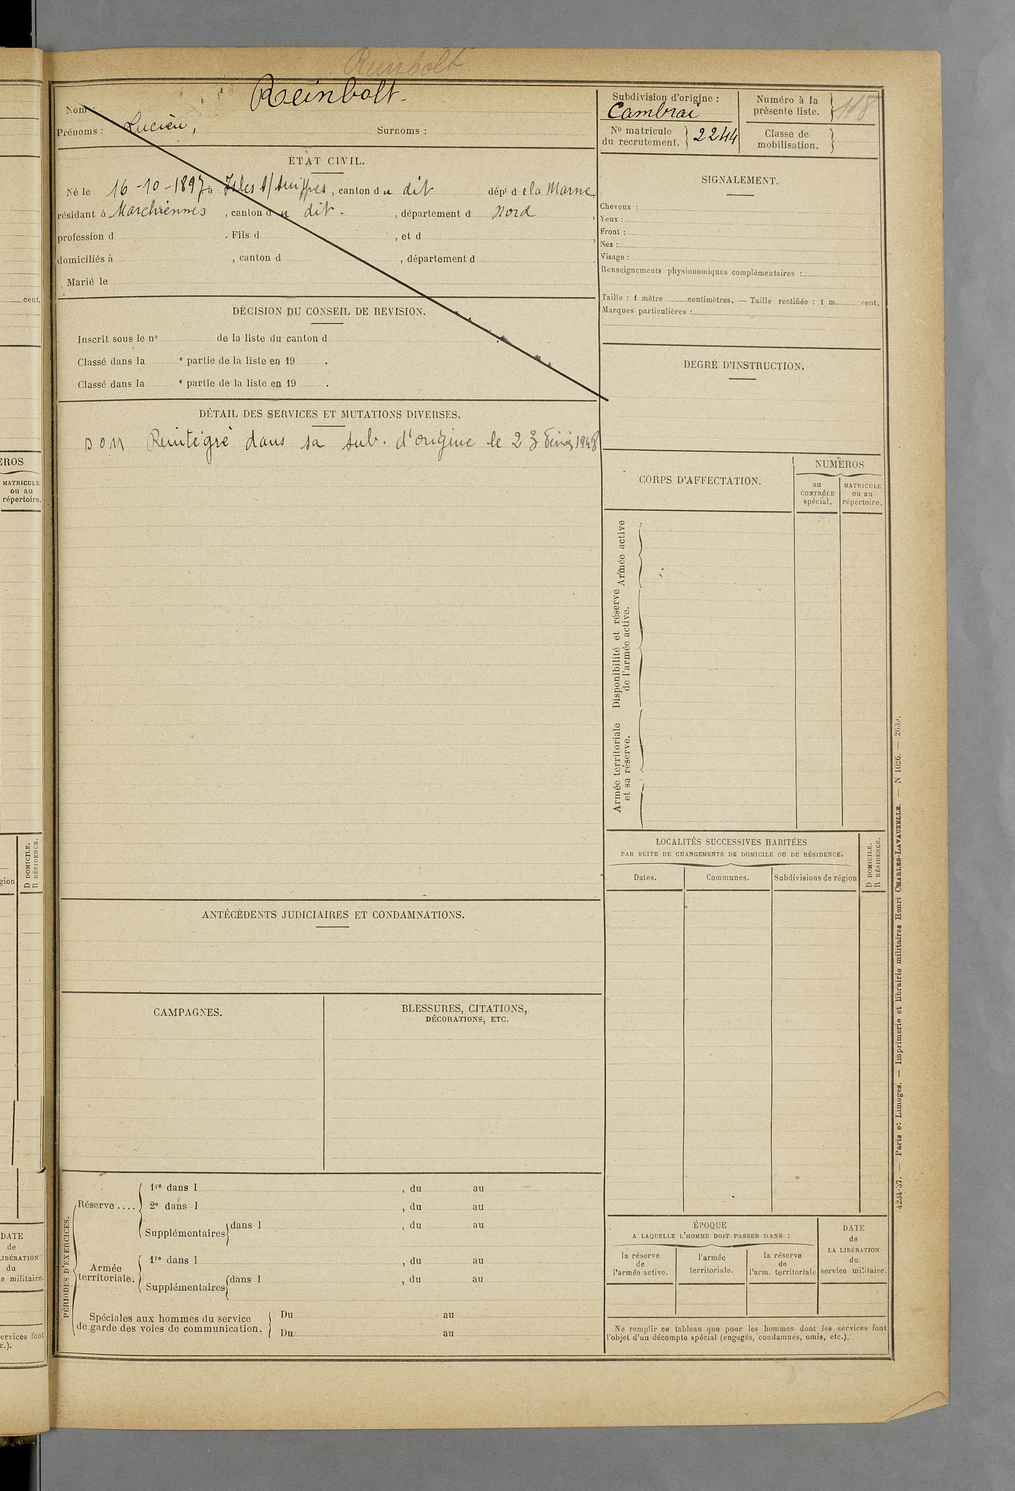 Reinbolt
Nom : Reinbolt
Prénoms : Lucien, Surnoms :
ÉTAT CIVIL.
Né le 16-10-1897 à Isles s/ Suippes, canton du dit dépt de la Marne
résidant à Marchiennes, canton du dit - , département d Nord,
profession d . Fils d , et d
domiciliés à , canton d , département d
Marié le
DÉCISION DU CONSEIL DE REVISION.
Inscrit sous le nº de la liste du canton d
Classé dans la e partie de la liste en 19 .
Classé dans la e partie de la liste en 19 .
DÉTAIL DES SERVICES ET MUTATIONS DIVERSES.
Réintégré dans sa sub. d'origine le 23
ANTÉCÉDENTS JUDICIAIRES ET CONDAMNATIONS.
CAMPAGNES.
BLESSURES, CITATIONS,
DÉCORATIONS, ETC.
PÉRIODES D'EXERCICES.
Réserve ....
1re dans l , du au
2e dans l , du au
Supplémentaires dans l , du au
Armée territoriale.
1re dans l , du au
Supplémentaires dans l , du au
Spéciales aux hommes du service
de garde des voies de communication.
Du au
Du au
Subdivision d'origine :
Cambrai
Nº matricule
du recrutement. 2244
Numéro à la
présente liste. 118
Classe de
mobilisation.
SIGNALEMENT.
Cheveux :
Yeux :
Front :
Nez :
Visage :
Renseignements physionomiques complémentaires :
Taille : 1 mètre centimètres. — Taille rectifiée : 1 m. cent.
Marques particulières :
DEGRÉ D'INSTRUCTION.
CORPS D'AFFECTATION.
NUMÉROS
au
CONTRÔLE
spécial.
MATRICULE
ou au
répertoire.
Armée active
Disponibilité et réserve
de l'armée active.
Armée territoriale
et sa réserve.
LOCALITÉS SUCCESSIVES HABITÉES
PAR SUITE DE CHANGEMENTS DE DOMICILE OU DE RÉSIDENCE.
D DOMICILE.
R RÉSIDENCE.
Dates. Communes. Subdivisions de région
ÉPOQUE
A LAQUELLE L'HOMME DOIT PASSER DANS :
la réserve
de
l'armée active.
l'armée
territoriale.
la réserve
de
l'arm. territoriale
DATE
de
LA LIBÉRATION
du
service militaire.
Ne remplir ce tableau que pour les hommes dont les services font
l'objet d'un décompte spécial (engagés, condamnés, omis, etc.).
4234-37. — Paris et Limoges. — Imprimerie et librairie militaires Henri CHARLES-LAVAUZELLE. — N 1026. —
ÉROS
MATRICULE
ou au
répertoire.
cent.
D DOMICILE.
R RÉSIDENCE.
DATE
de
LIBÉRATION
du
e militaire.
ervices font
c.).